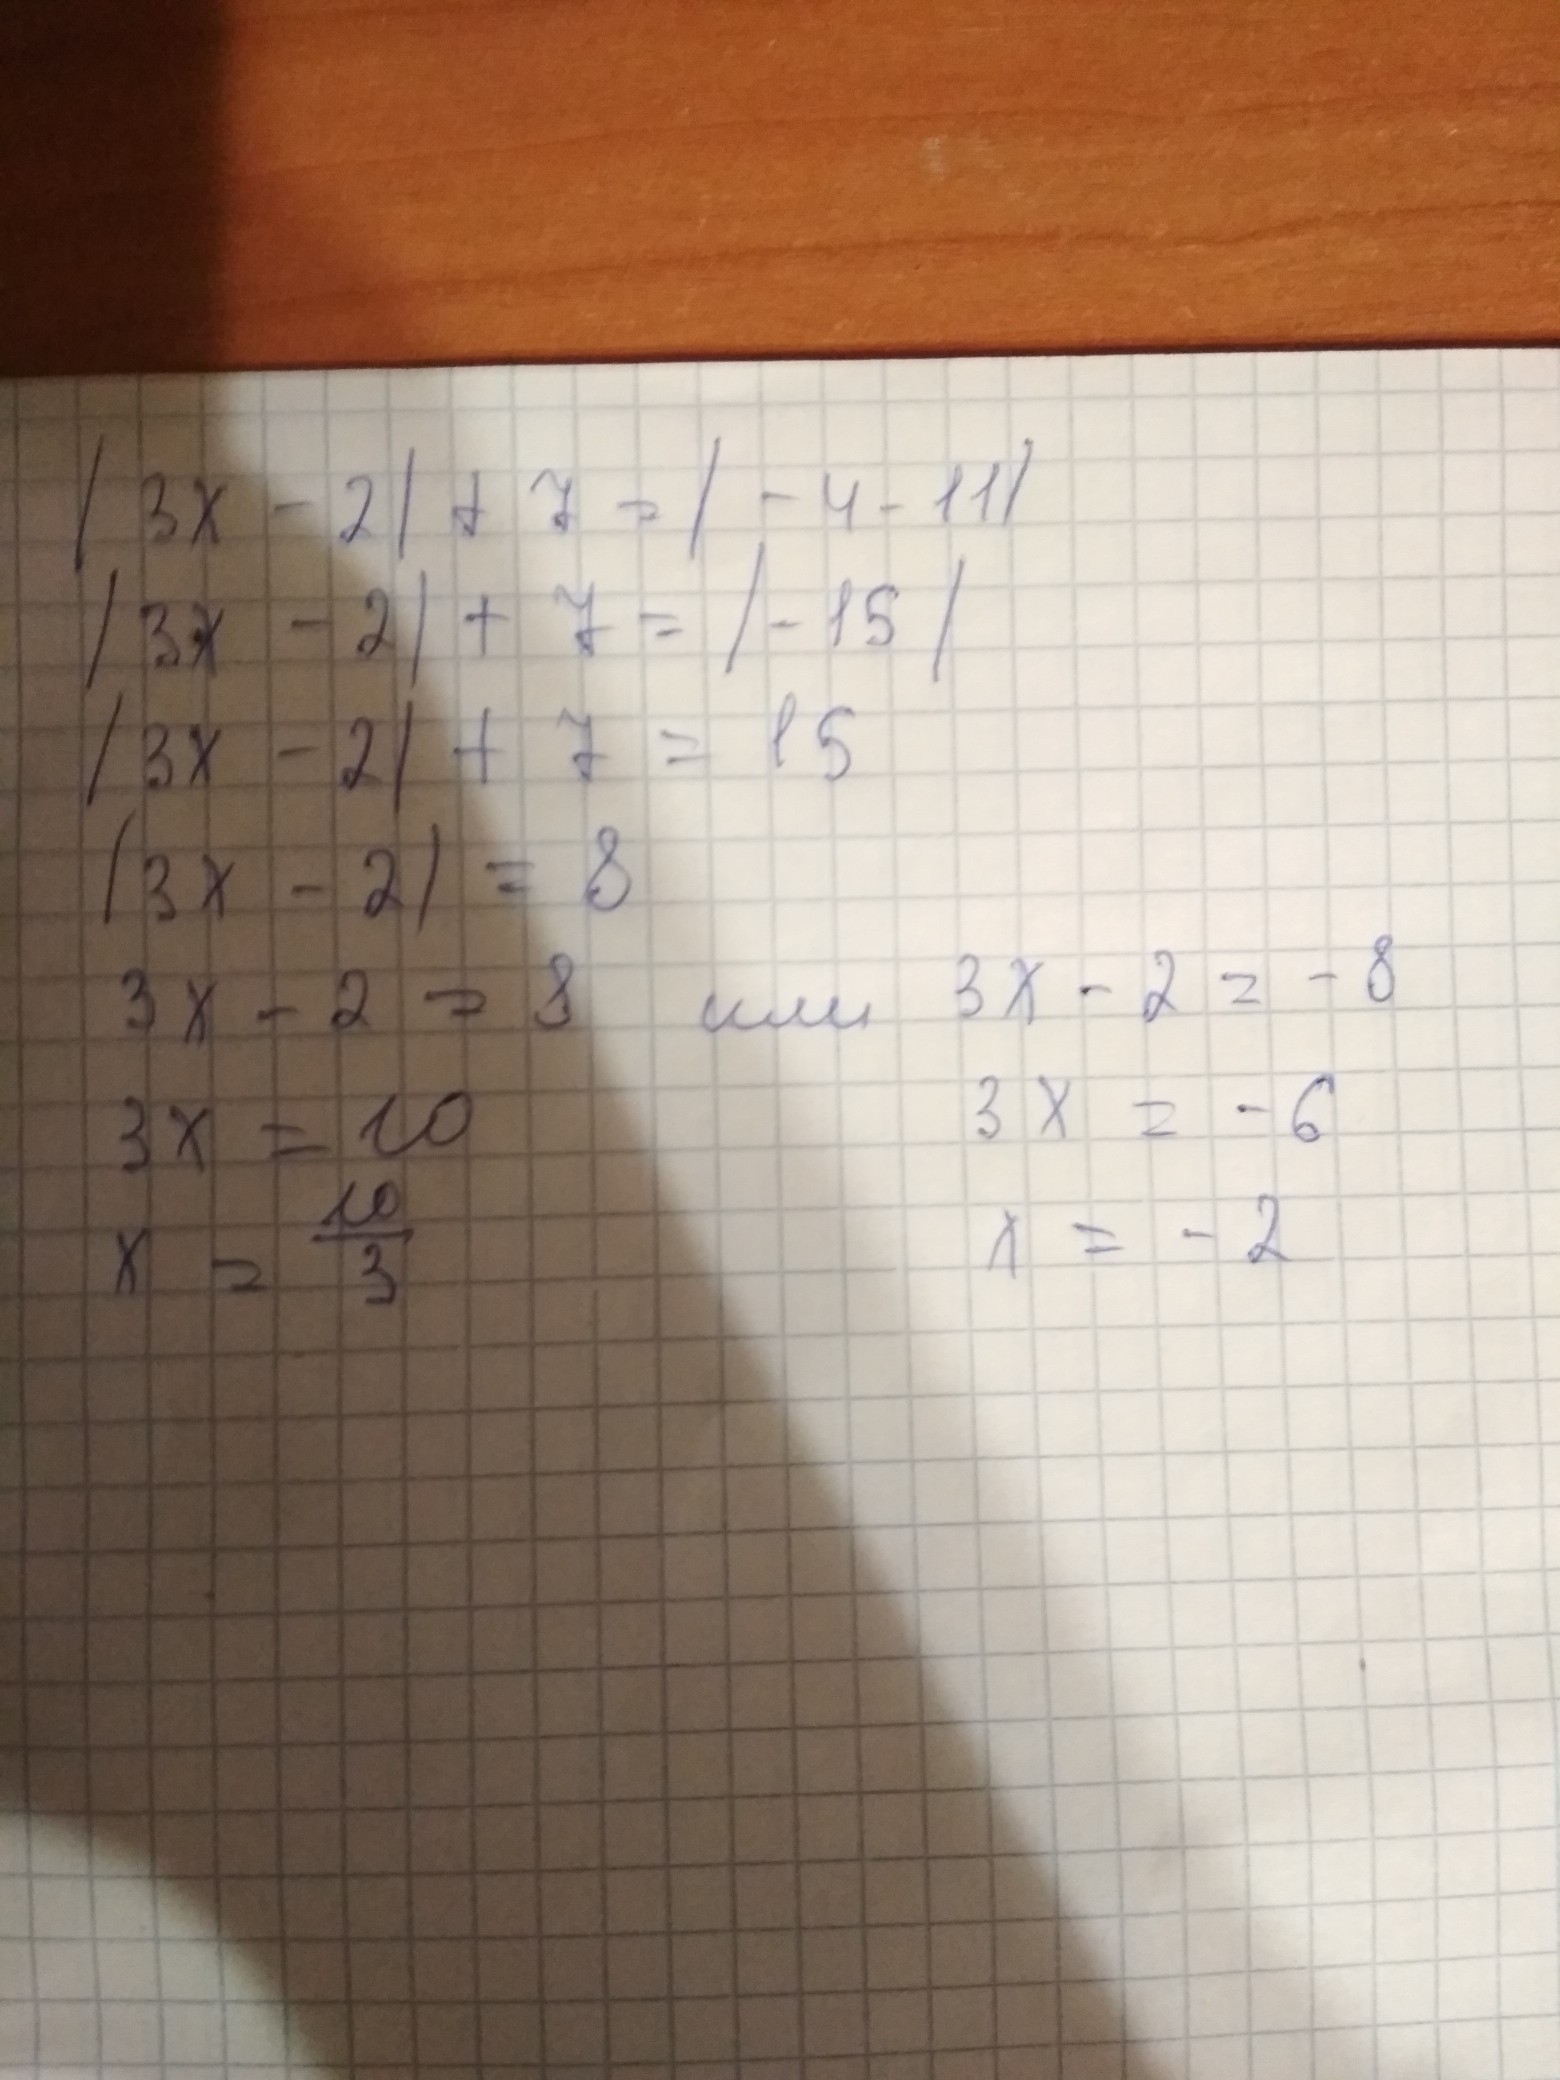 |3x - 2| + 7 = |-4-11|
|3x - 2| + 7 = |-15|
|3x - 2| + 7 = 15
|3x - 2| = 8
3x - 2 = 8 или 3x - 2 = -8
3x = 10 3x = -6
x = 10/3 x = -2